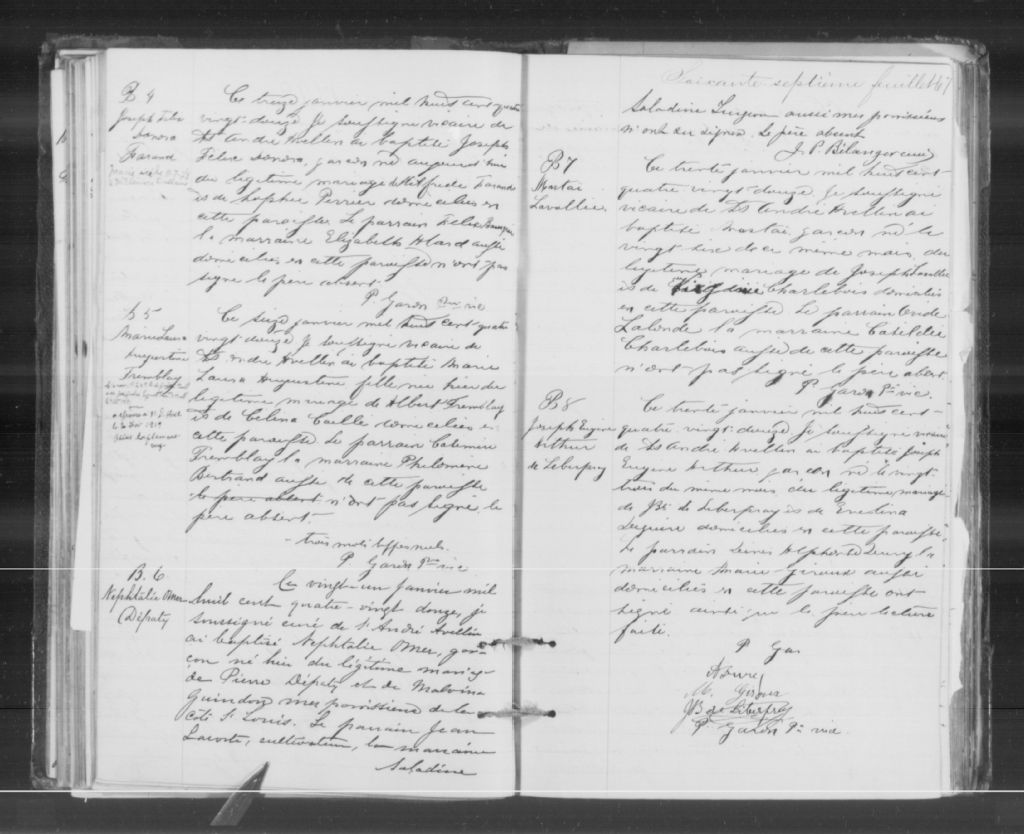 B 4
Joseph Felix
Sandro
Farand
Ce treize janvier mil huit cent quatre
vingt douze Je soussigné vicaire de
St André Avellin ai baptisé Joseph
Felix Sandro, garcon né aujourd'hui
du legitime mariage de Wilfride Farand
et de Sophie Perrier domiciliés en
cette paroisse Le parrain Felix
la marraine Elizabeth Hard aussi
domiciliés en cette paroisse n'ont pas
signé le père absent.
P Garon Ptre vic
B 5
Marie Laura
Augustine
Tremblay
Ce seize janvier mil huit cent quatre
vingt douze Je soussigné vicaire de
St André Avellin ai baptisé Marie
Laura Augustine fille née hier du
legitime mariage de Albert Tremblay
et de Celina Caille domiciliés en
cette paroisse Le parrain Calennie
Tremblay la marraine Philomène
Bertrand aussi de cette paroisse
le père absent n'ont pas signé le
père absent.
- trois mots biffés nuls.
P Garon Ptre vic
B. 6
Nephtalie Omer
Députy
Ce vingt-un Janvier mil
huit cent quatre-vingt douze, je
soussigné curé de St André Avellin
ai baptisé Nephtalie Omer, gar-
çon né hier du légitime mariage
de Pierre Députy et de Malvina
Guindon mes paroissiens de la
côte St Louis. Le parrain Jean
Lacoste, cultivateur, la marraine
Saladine
Soixante septième feuillet 67
Saladine aussi mes paroissiens
n'ont su signer. Le père absent
J. P. Bélanger curé
B 7
Mastai
Lavallée
Ce trente janvier mil huit cent
quatre vingt douze Je soussigné
vicaire de St André Avellin ai
baptisé Mastai, garcon né le
vingt six de ce même mois, du
legitime mariage de Joseph Lavallée
et de Virginie Charlebois domiciliés
en cette paroisse Le parrain Onide
Lalonde la marraine Casildée
Charlebois aussi de cette paroisse
n'ont pas signé le père absent
P Garon Ptre vic.
B 8
Joseph Eugène
Arthur
de Leberpray
Ce trente janvier mil huit cent-
quatre vingt-douze Je soussigné vicaire
de St André Avellin ai baptisé Joseph
Eugène Arthur garcon né le vingt
trois du même mois du legitime mariage
de JBte de Leberpray et de Ernestina
Leguire domiciliés en cette paroisse,
Le parrain Louis Alphonse Leury la
marraine Marie-Giroux aussi
domiciliés en cette paroisse ont
signé ainsi que le père lecture
faite.
P Gar
M. Giroux
JB de Leberpray
P Garon Ptre vic.